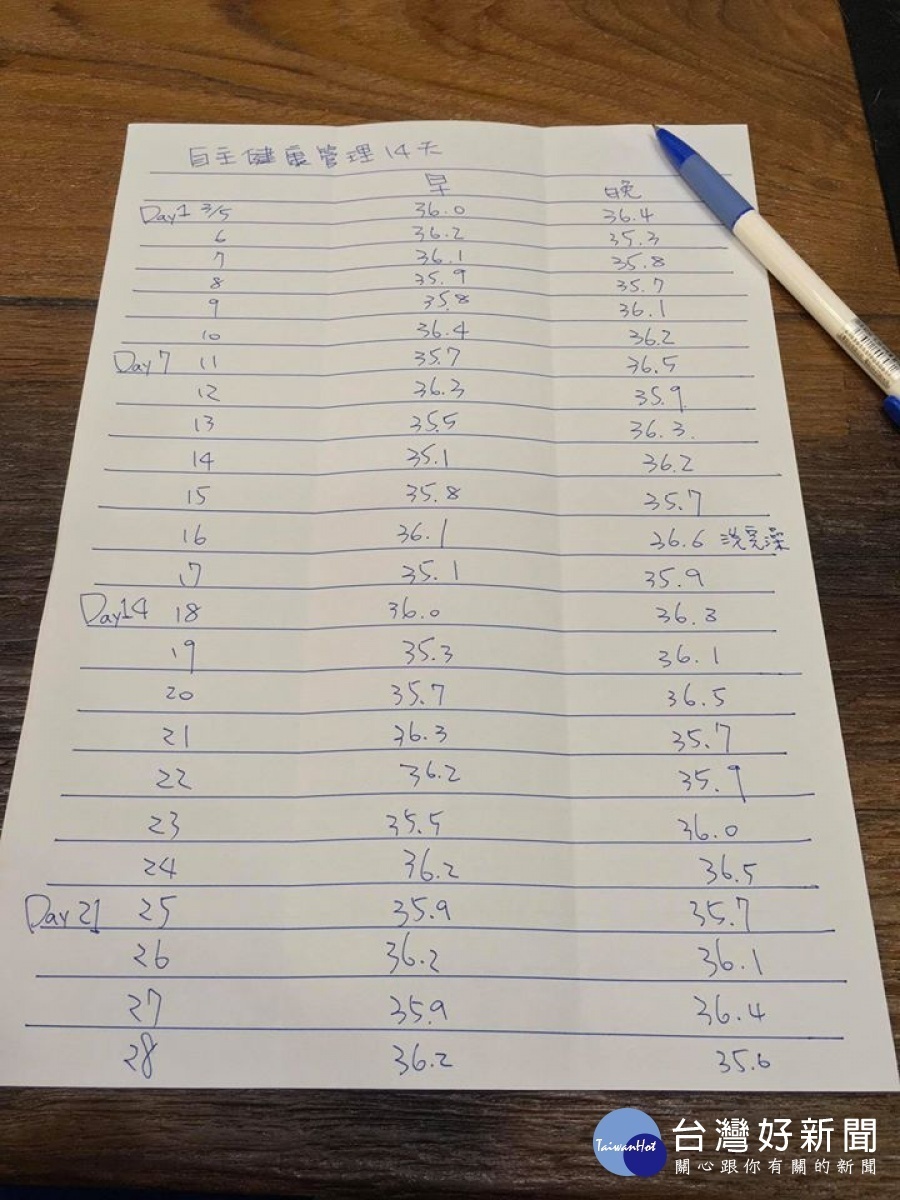 自主健康管理14天
早 晚
Day1 3/5 36.0 36.4
6 36.2 35.3
7 36.1 35.8
8 35.9 35.7
9 35.8 36.1
10 36.4 36.2
Day7 11 35.7 36.5
12 36.3 35.9
13 35.5 36.3
14 35.1 36.2
15 35.8 35.7
16 36.1 36.6 洗完澡
17 35.1 35.9
Day14 18 36.0 36.3
19 35.3 36.1
20 35.7 36.5
21 36.3 35.7
22 36.2 35.9
23 35.5 36.0
24 36.2 36.5
Day 21 25 35.9 35.7
26 36.2 36.1
27 35.9 36.4
28 36.2 35.6
TaiwanHot 台灣好新聞
關心跟你有關的新聞